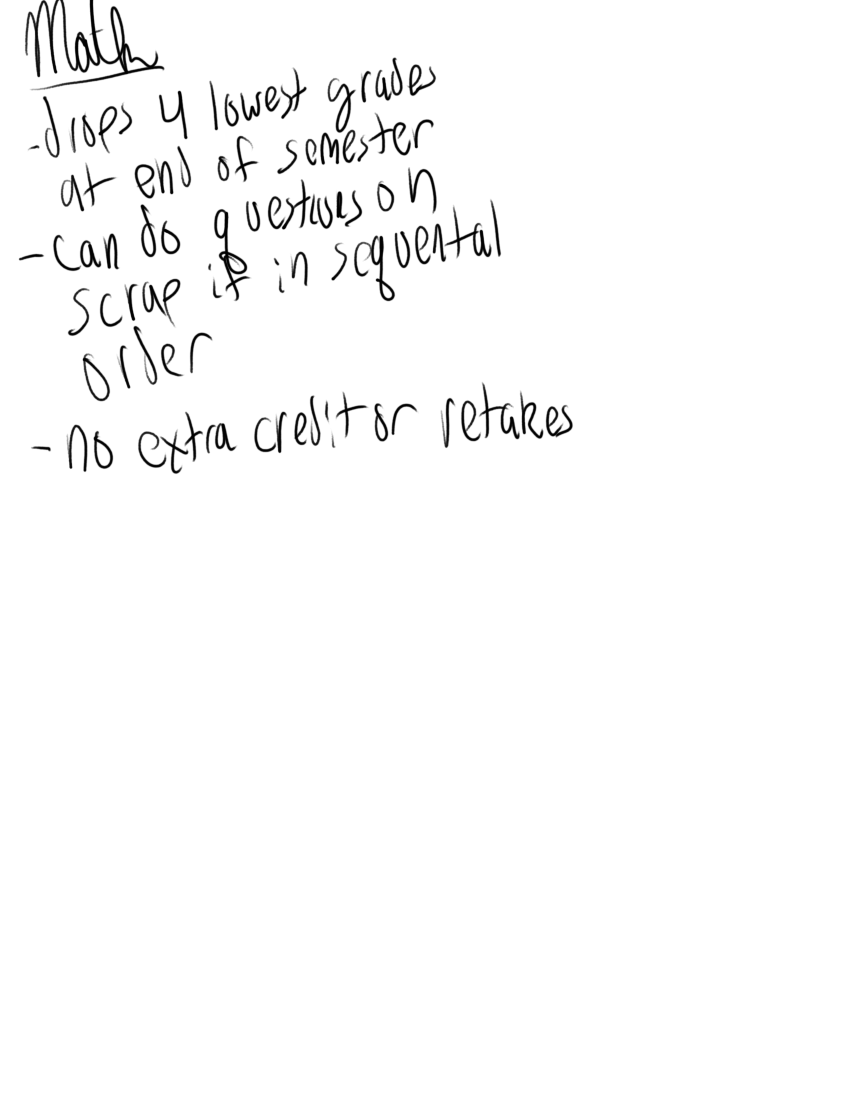 Math
- drops 4 lowest grades
at end of semester
- can do questions on
scrap if in sequental
order
- no extra credit or retakes